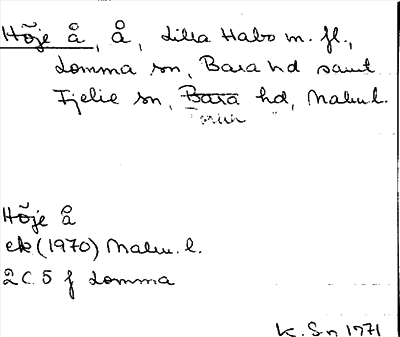 Höje å, å, Lilla Habo m. fl.,
Lomma sn, Bara hd samt
Fjelie sn, Bara hd, Malm. l.
Torna "
Höje å
ek (1970) Malm. l.
2 C 5 f Lomma
K. Sn 1971